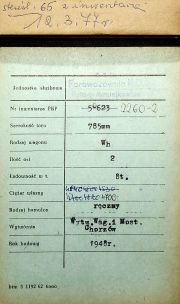 skreśl. 66 z inwentarza
12.3.77r
Jednostka służbowa
Parowozownia
Nr inwentarza PKP 59623 2260-2
Szerokość toru 785mm
Rodzaj wagonu Wh
Ilość osi 2
Ładowność w t. 8t.
Ciężar własny 4100
Rodzaj hamulca ręczny
Wytwórnia Wytw.Wag.i Most.
Chorzów
Rok budowy 1948r.